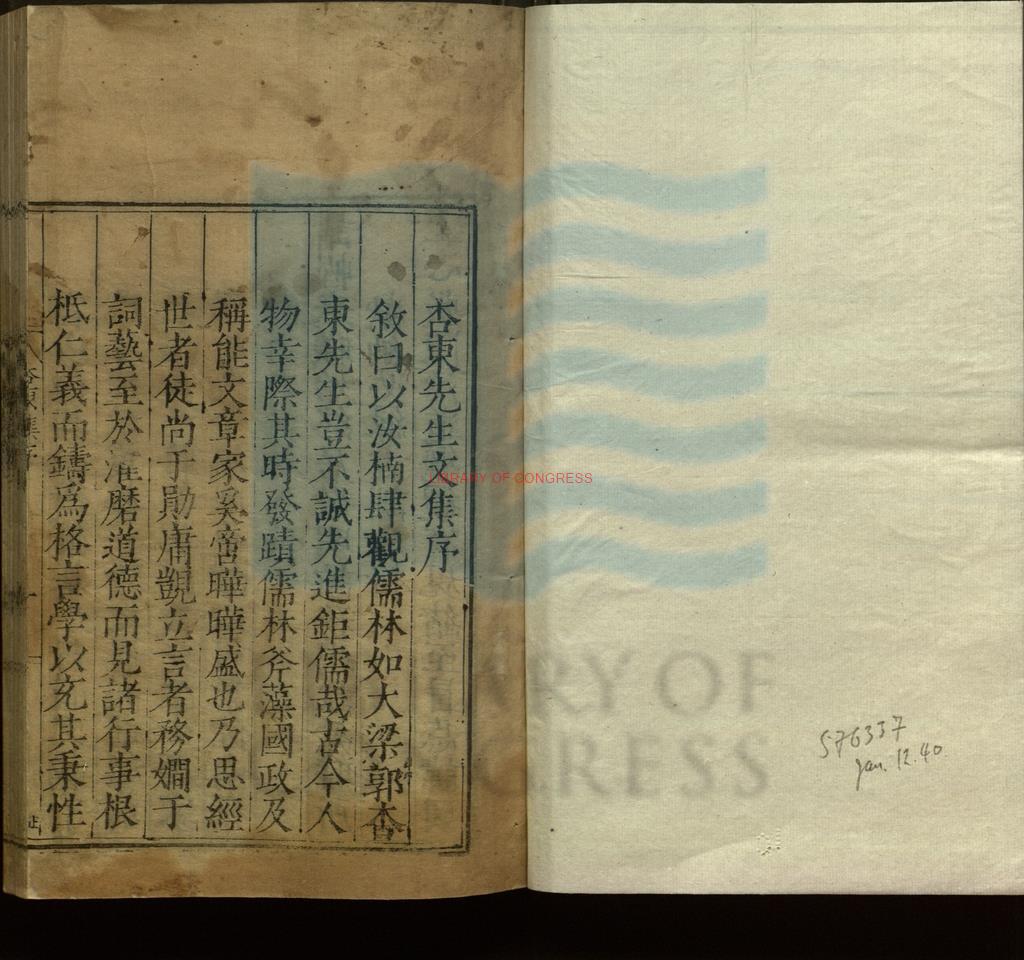 杏東先生文集序
敘曰以汝楠肆觀儒林如大梁郭杏
東先生豈不誠先進鉅儒哉古今人
物幸際其時發蹟儒林斧藻國政及
稱能文章家奚啻曄曄盛也乃思經
世者徒尚于勛庸覬立言者務嫺于
詞藝至於淮磨道德而見諸行事根
柢仁義而鑄爲格言學以充其秉性
杏東集序
一
576337
Jan. 12. 40
LIBRARY OF CONGRESS